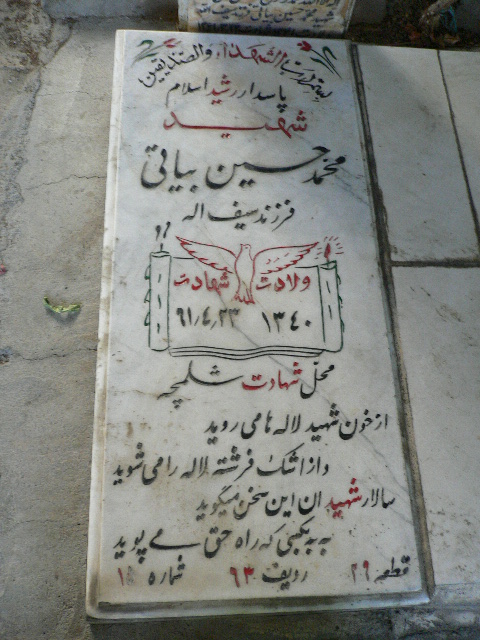 بسم رب الشهداء والصدیقین
پاسدار رشید اسلام
شهید
محمد حسین بیاتی
فرزند سیف اله
ولادت شهادت
۱۳۴۰ ۶۱٫۴٫۲۳
محل شهادت شلمچه
از خون شهید لاله ها می روید
واز اشک فرشته لاله را می شوید
سالار شهیدان این سخن میگوید
به به بکسی که راه حق می پوید
قطعه ۲۹ ردیف ۶۳ شماره